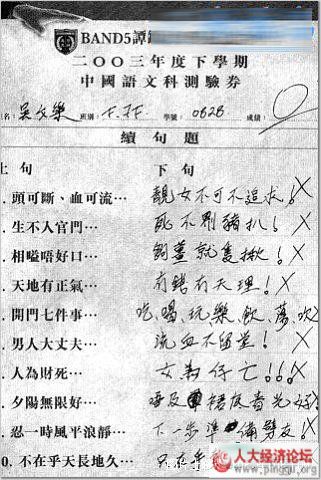 BAND5譚
二〇〇三年度下學期
中國語文科測驗券
名：吳文樂 班別：F.3F 學號：0626 成績：0
續句題
上句 下句
. 頭可斷、血可流⋯ 靚女不可不追求！X
. 生不入官門⋯ 死不劏豬扒！X
. 相嗌唔好口⋯ 就隻揪！X
. 天地有正氣⋯ 有錢有天理！X
. 開門七件事⋯ 吃、喝、玩、樂、飲、蕩、吹
. 男人大丈夫⋯ 流血不留堂！X
. 人為財死⋯ 女為仔亡！！！X
. 夕陽無限好⋯ 唔及 樓底看先好！X
. 忍一時風平浪靜⋯ 下一步準備劈友！X
0. 不在乎天長地久⋯ 只在乎
人大经济论坛
www.pinggu.org